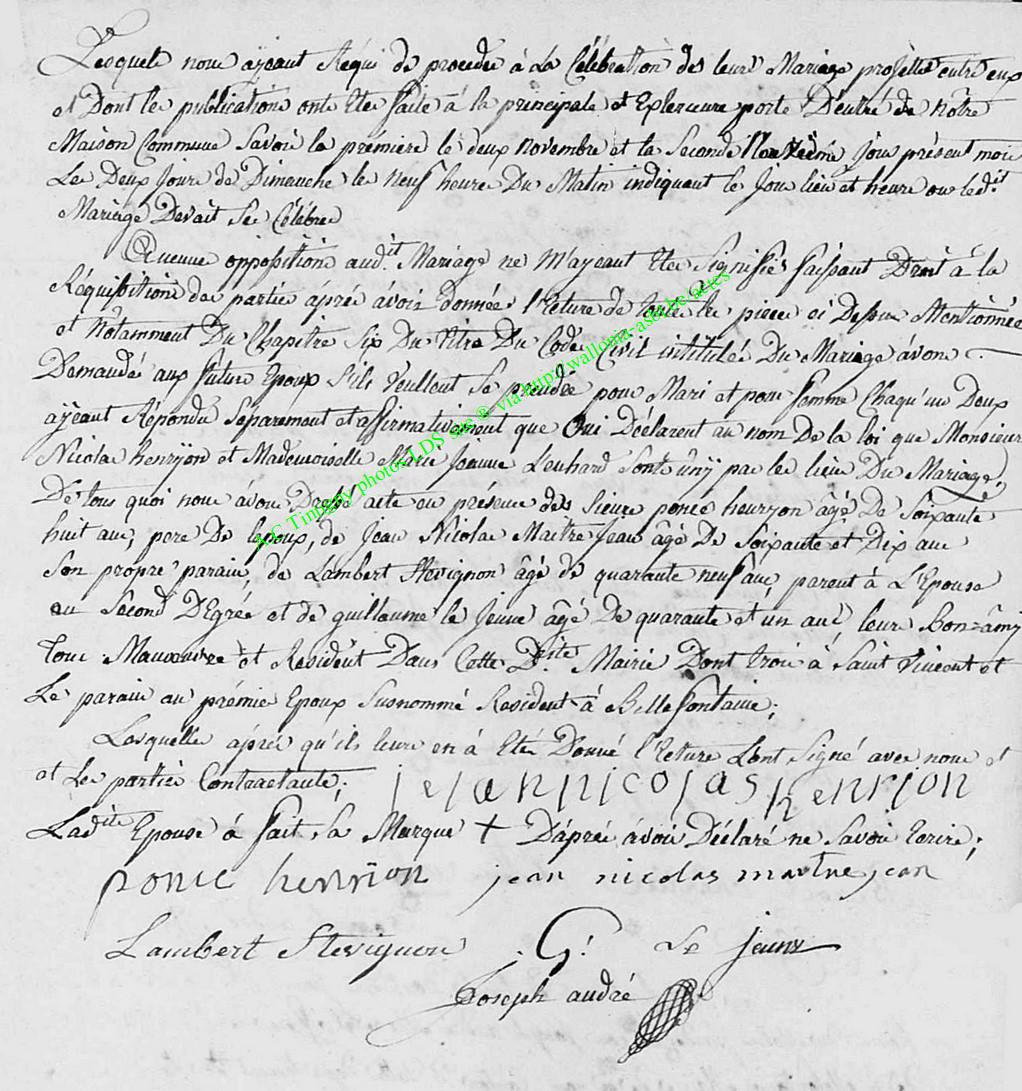 Lesquels nous ayeant Réqui de proceder à La Célébration des leurs Mariage projetté entre eux
et Dont les publications onts Etes faite à la principale et Exterieure porte D'entré de nôtre
Maison Commune Savoir la première le deux novembre et la Seconde Neuvième Jour présent mois
Les Deux Jours de Dimanche les Neuf heure Du Matin indiquant le Jour lieu et heure ou ledit
Mariage Devait Se Célébrer
Aucune opposition audit Mariage ne M'ayeant Etes Signifiés faissant Droit à la
Réquisitions des parties aprés avoir donnés l'Eture de toute les pieces ci Dessus Mentionnés
et Notamment Du Chapitre Six Du titre Du Code Civil intitulés Du Mariage avons
Demandé aux future Epoux S'ils Veullent Se prendre pour Mari et pour femme Chaqu'un Deux
ayeant Répondu Separement et affirmativement que Oui Déclarent au nom De la loi que Monsieur
Nicolas henryon et Mademoiselle Marie Jeanne Leuhard Sonts ûnÿ par les lieu Du Mariage,
De tous quoi nous avons Dressé acte en présence des Sieurs ponce henryon âgé De Soixante
huit ans, pere De l'epoux, de Jean Nicolas Maitre Jean âgé De Soixante et Dix ans
Son propre parain, de Lambert Stevignon âgé de quarante neuf ans, parent à L'Epouse
au Second D'Egrée et de guillaume le Jeune âgé De quarante et un ans leurs Bon=âmy
tous Manoeuvre et Resident Dans Cette Dite Mairie Dont trois à Saint Vincent et
Le parain au premier Epoux Susnommé Resident à Belle fontaine;
Lesquelles aprés qu'ils leurs en à Etés Donné l'Eture Lont Signé avec nous et
et Les parties Contractante; jejannicolas henrijon
Ladite Epouse à fait Sa Marque + D'aprés avoir Déclaré ne Savoir Ecrire;
ponce henrïion jean nicolas maitre jean
Lambert Stevignon G: Le jeune
Joseph andré
A.C Timmy photos LDS sae ® via http://wallonia-asbl.be/actes